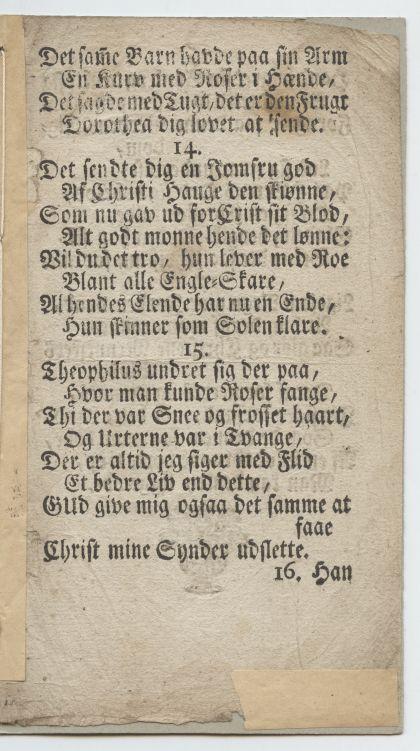 Det sam̄e Barn havde paa sin Arm
En Kurv med Roser i Hænde,
Det sagde med Tugt, det er den Frugt
Dorothea dig lovet at sende.
14.
Det sendte dig en Jomfru god
Af Christi Hauge den skiønne,
Som nu gav ud for Crist sit Blod,
Alt godt monne hende det lønne:
Vil du det tro, hun lever med Roe
Blant alle Engle-Skare,
Al hendes Elende har nu en Ende,
Hun skinner som Solen klare.
15.
Theophilus undret sig der paa,
Hvor man kunde Roser fange,
Thi der var Snee og frosset haart,
Og Urterne var i Tvange,
Der er altid jeg siger med Flid
Et bedre Liv end dette,
GUd give mig ogsaa det samme at
faae
Christ mine Synder udslette.
16. Han